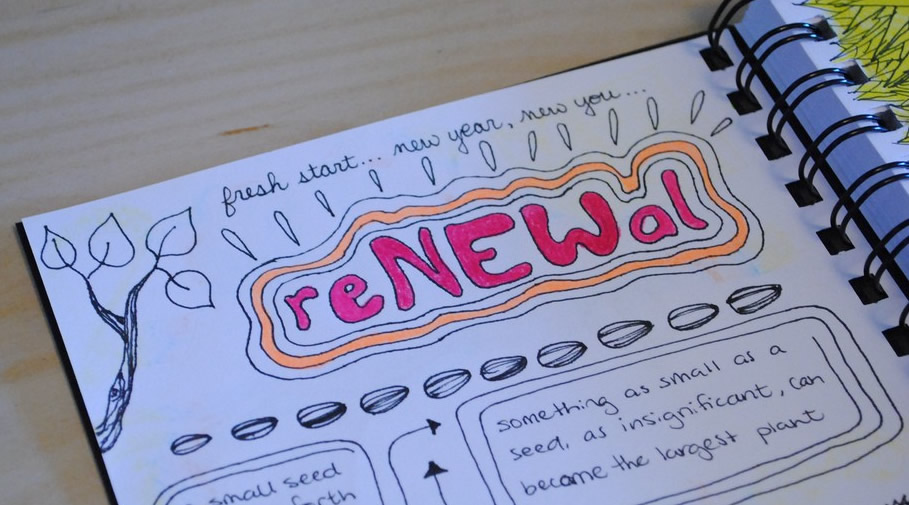 fresh start... new year, new you...
reNEWal
something as small as a
seed, as insignificant, can
become the largest plant
small seed
forth